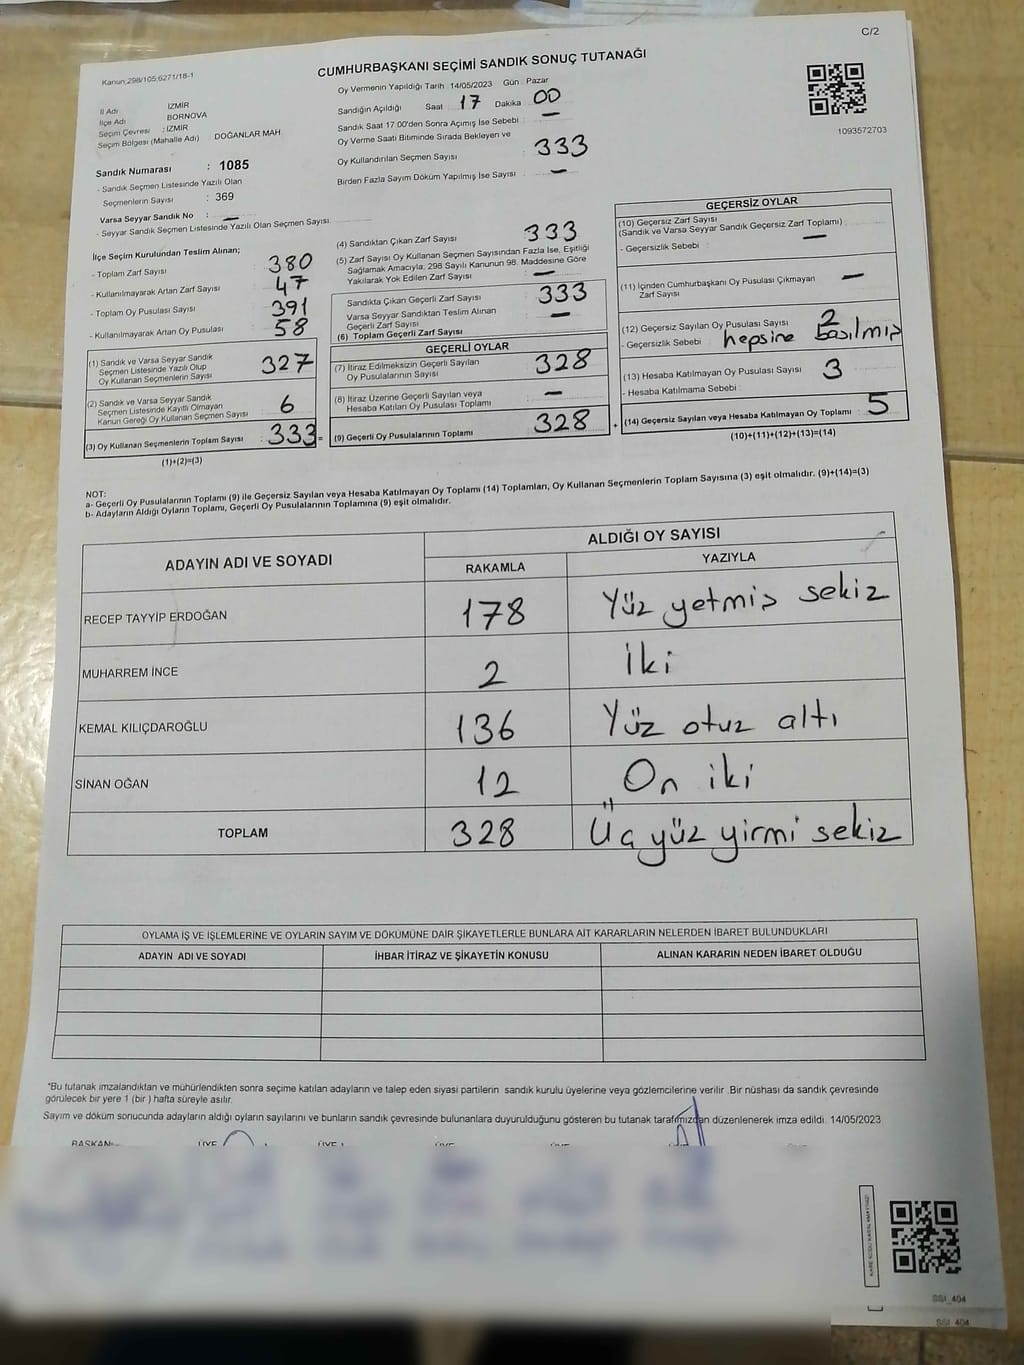 C/2
Kanun;298/105;6271/18-1
CUMHURBAŞKANI SEÇİMİ SANDIK SONUÇ TUTANAĞI
İl Adı : İZMİR
İlçe Adı : BORNOVA
Seçim Çevresi : İZMİR
Seçim Bölgesi (Mahalle Adı) DOĞANLAR MAH
Oy Vermenin Yapıldığı Tarih 14/05/2023 Gün : Pazar
Sandığın Açıldığı Saat 17 Dakika 00
Sandık Saat 17:00'den Sonra Açımış İse Sebebi : —
Oy Verme Saati Bitiminde Sırada Bekleyen ve
Oy Kullandırılan Seçmen Sayısı : 333
Birden Fazla Sayım Döküm Yapılmış İse Sayısı : —
1093572703
Sandık Numarası : 1085
- Sandık Seçmen Listesinde Yazılı Olan
Seçmenlerin Sayısı : 369
Varsa Seyyar Sandık No : —
- Seyyar Sandık Seçmen Listesinde Yazılı Olan Seçmen Sayısı:
İlçe Seçim Kurulundan Teslim Alınan;
- Toplam Zarf Sayısı : 380
- Kullanılmayarak Artan Zarf Sayısı : 47
- Toplam Oy Pusulası Sayısı : 391
- Kullanılmayarak Artan Oy Pusulası : 58
(1) Sandık ve Varsa Seyyar Sandık
Seçmen Listesinde Yazılı Olup
Oy Kullanan Seçmenlerin Sayısı : 327
(2) Sandık ve Varsa Seyyar Sandık
Seçmen Listesinde Kayıtlı Olmayan
Kanun Gereği Oy Kullanan Seçmen Sayısı : 6
(3) Oy Kullanan Seçmenlerin Toplam Sayısı : 333 =
(1)+(2)=(3)
(4) Sandıktan Çıkan Zarf Sayısı : 333
(5) Zarf Sayısı Oy Kullanan Seçmen Sayısından Fazla İse, Eşitliği
Sağlamak Amacıyla; 298 Sayılı Kanunun 98. Maddesine Göre
Yakılarak Yok Edilen Zarf Sayısı : —
Sandıkta Çıkan Geçerli Zarf Sayısı : 333
Varsa Seyyar Sandıktan Teslim Alınan
Geçerli Zarf Sayısı : —
(6) Toplam Geçerli Zarf Sayısı
GEÇERLİ OYLAR
(7) İtiraz Edilmeksizin Geçerli Sayılan
Oy Pusulalarının Sayısı : 328
(8) İtiraz Üzerine Geçerli Sayılan veya
Hesaba Katılan Oy Pusulası Toplamı : —
(9) Geçerli Oy Pusulalarının Toplamı : 328 +
GEÇERSİZ OYLAR
(10) Geçersiz Zarf Sayısı
(Sandık ve Varsa Seyyar Sandık Geçersiz Zarf Toplamı) : —
- Geçersizlik Sebebi :
(11) İçinden Cumhurbaşkanı Oy Pusulası Çıkmayan
Zarf Sayısı : —
(12) Geçersiz Sayılan Oy Pusulası Sayısı : 2
- Geçersizlik Sebebi : hepsine basılmış
(13) Hesaba Katılmayan Oy Pusulası Sayısı : 3
- Hesaba Katılmama Sebebi :
(14) Geçersiz Sayılan veya Hesaba Katılmayan Oy Toplamı : 5
(10)+(11)+(12)+(13)=(14)
NOT:
a- Geçerli Oy Pusulalarının Toplamı (9) ile Geçersiz Sayılan veya Hesaba Katılmayan Oy Toplamı (14) Toplamları, Oy Kullanan Seçmenlerin Toplam Sayısına (3) eşit olmalıdır. (9)+(14)=(3)
b- Adayların Aldığı Oyların Toplamı, Geçerli Oy Pusulalarının Toplamına (9) eşit olmalıdır.
ADAYIN ADI VE SOYADI ALDIĞI OY SAYISI
RAKAMLA YAZIYLA
RECEP TAYYİP ERDOĞAN 178 Yüz yetmiş sekiz
MUHARREM İNCE 2 İki
KEMAL KILIÇDAROĞLU 136 Yüz otuz altı
SİNAN OĞAN 12 On iki
TOPLAM 328 Üç yüz yirmi sekiz
OYLAMA İŞ VE İŞLEMLERİNE VE OYLARIN SAYIM VE DÖKÜMÜNE DAİR ŞİKAYETLERLE BUNLARA AİT KARARLARIN NELERDEN İBARET BULUNDUKLARI
ADAYIN ADI VE SOYADI İHBAR İTİRAZ VE ŞİKAYETİN KONUSU ALINAN KARARIN NEDEN İBARET OLDUĞU
*Bu tutanak imzalandıktan ve mühürlendikten sonra seçime katılan adayların ve talep eden siyasi partilerin sandık kurulu üyelerine veya gözlemcilerine verilir .Bir nüshası da sandık çevresinde
görülecek bir yere 1 (bir ) hafta süreyle asılır.
Sayım ve döküm sonucunda adayların aldığı oyların sayılarını ve bunların sandık çevresinde bulunanlara duyurulduğunu gösteren bu tutanak tarafımızdan düzenlenerek imza edildi. 14/05/2023
BAŞKAN ÜYE ÜYE ÜYE ÜYE
SSI_404
SSI_404